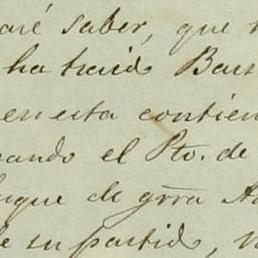 aré saber, que
ha traido Bar
en esta contien
ando el Pto. de
uque de grra A
e su partido,